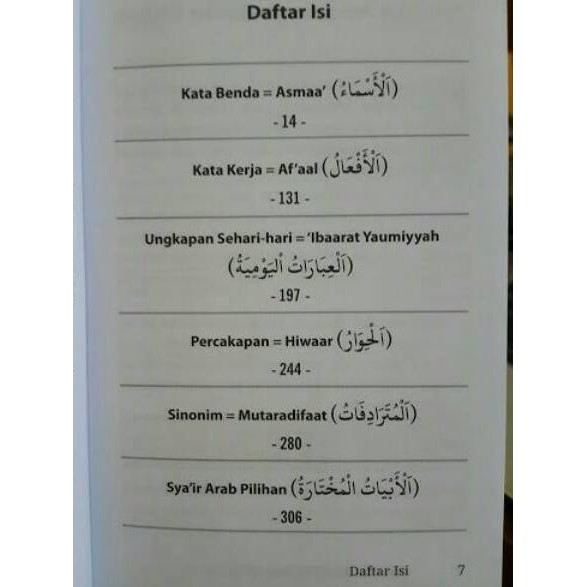 Daftar Isi
Kata Benda = Asmaa' (اَلْأَسْمَاءُ)
- 14 -
Kata Kerja = Af'aal (اَلْأَفْعَالُ)
- 131 -
Ungkapan Sehari-hari = 'Ibaarat Yaumiyyah
(اَلْعِبَارَاتُ الْيَوْمِيَةُ)
- 197 -
Percakapan = Hiwaar (اَلْحِوَارُ)
- 244 -
Sinonim = Mutaradifaat (اَلْمُتَرَادِفَاتُ)
- 280 -
Sya'ir Arab Pilihan (اَلْأَبْيَاتُ الْمُخْتَارَةُ)
- 306 -
Daftar Isi 7